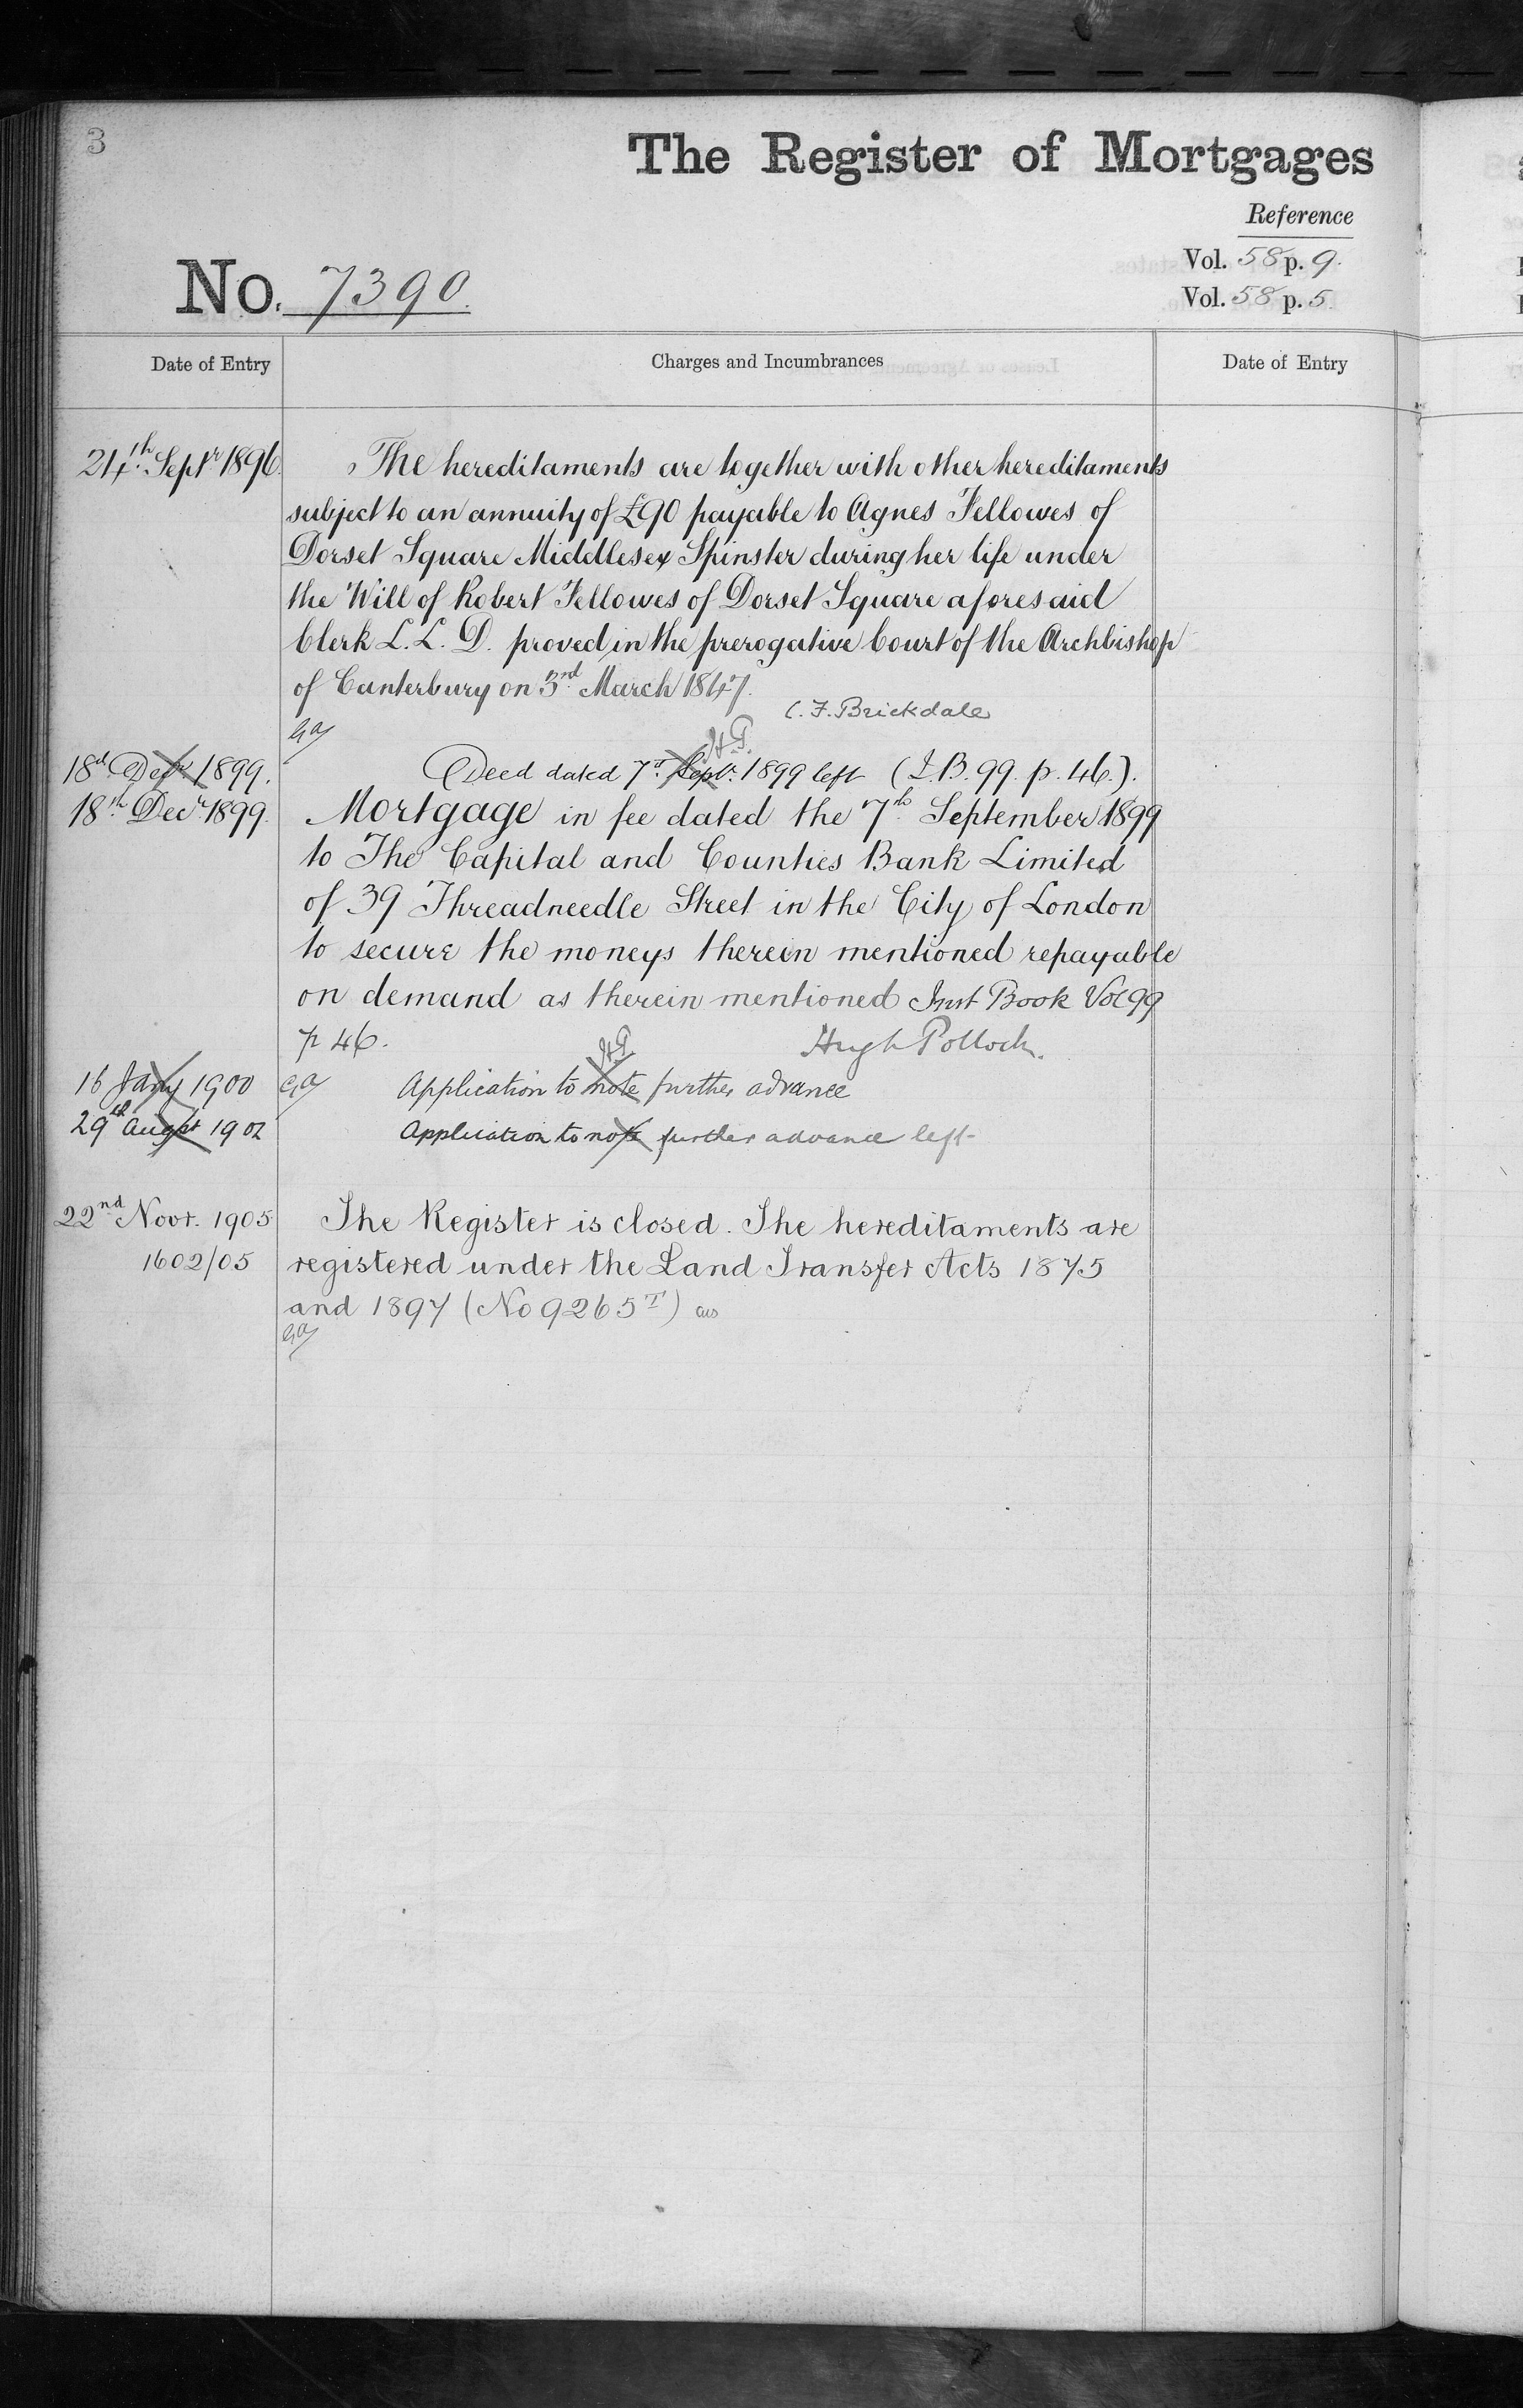 3
The Register of Mortgages
Reference
Vol. 58 p. 9.
Vol. 58 p. 5.
No. 7390.
Date of Entry
Charges and Incumbrances
Date of Entry
24th Septr 1896.
The hereditaments are together with other hereditaments
subject to an annuity of £90 payable to Agnes Fellowes of
Dorset Square Middlesex Spinster during her life under
the Will of Robert Fellowes of Dorset Square aforesaid
Clerk L. L. D. proved in the prerogative Court of the Archbishop
of Canterbury on 3rd March 1847.
C. F. Brickdale
H.P.
18th Decr 1899.
Deed dated 7th Septr. 1899 left (I.B. 99. p. 46.).
18th Decr 1899.
Mortgage in fee dated the 7th September 1899
to The Capital and Counties Bank Limited
of 39 Threadneedle Street in the City of London
to secure the moneys therein mentioned repayable
on demand as therein mentioned Inst Book Vol 99
p 46.
Hugh Pollock.
H.P.
16 Jany 1900
Application to note further advance
29th Augst 1902
Application to note further advance left
22nd Novr. 1905
The Register is closed. The hereditaments are
1602/05
registered under the Land Transfer Acts 1875
and 1897 (No 9265T)